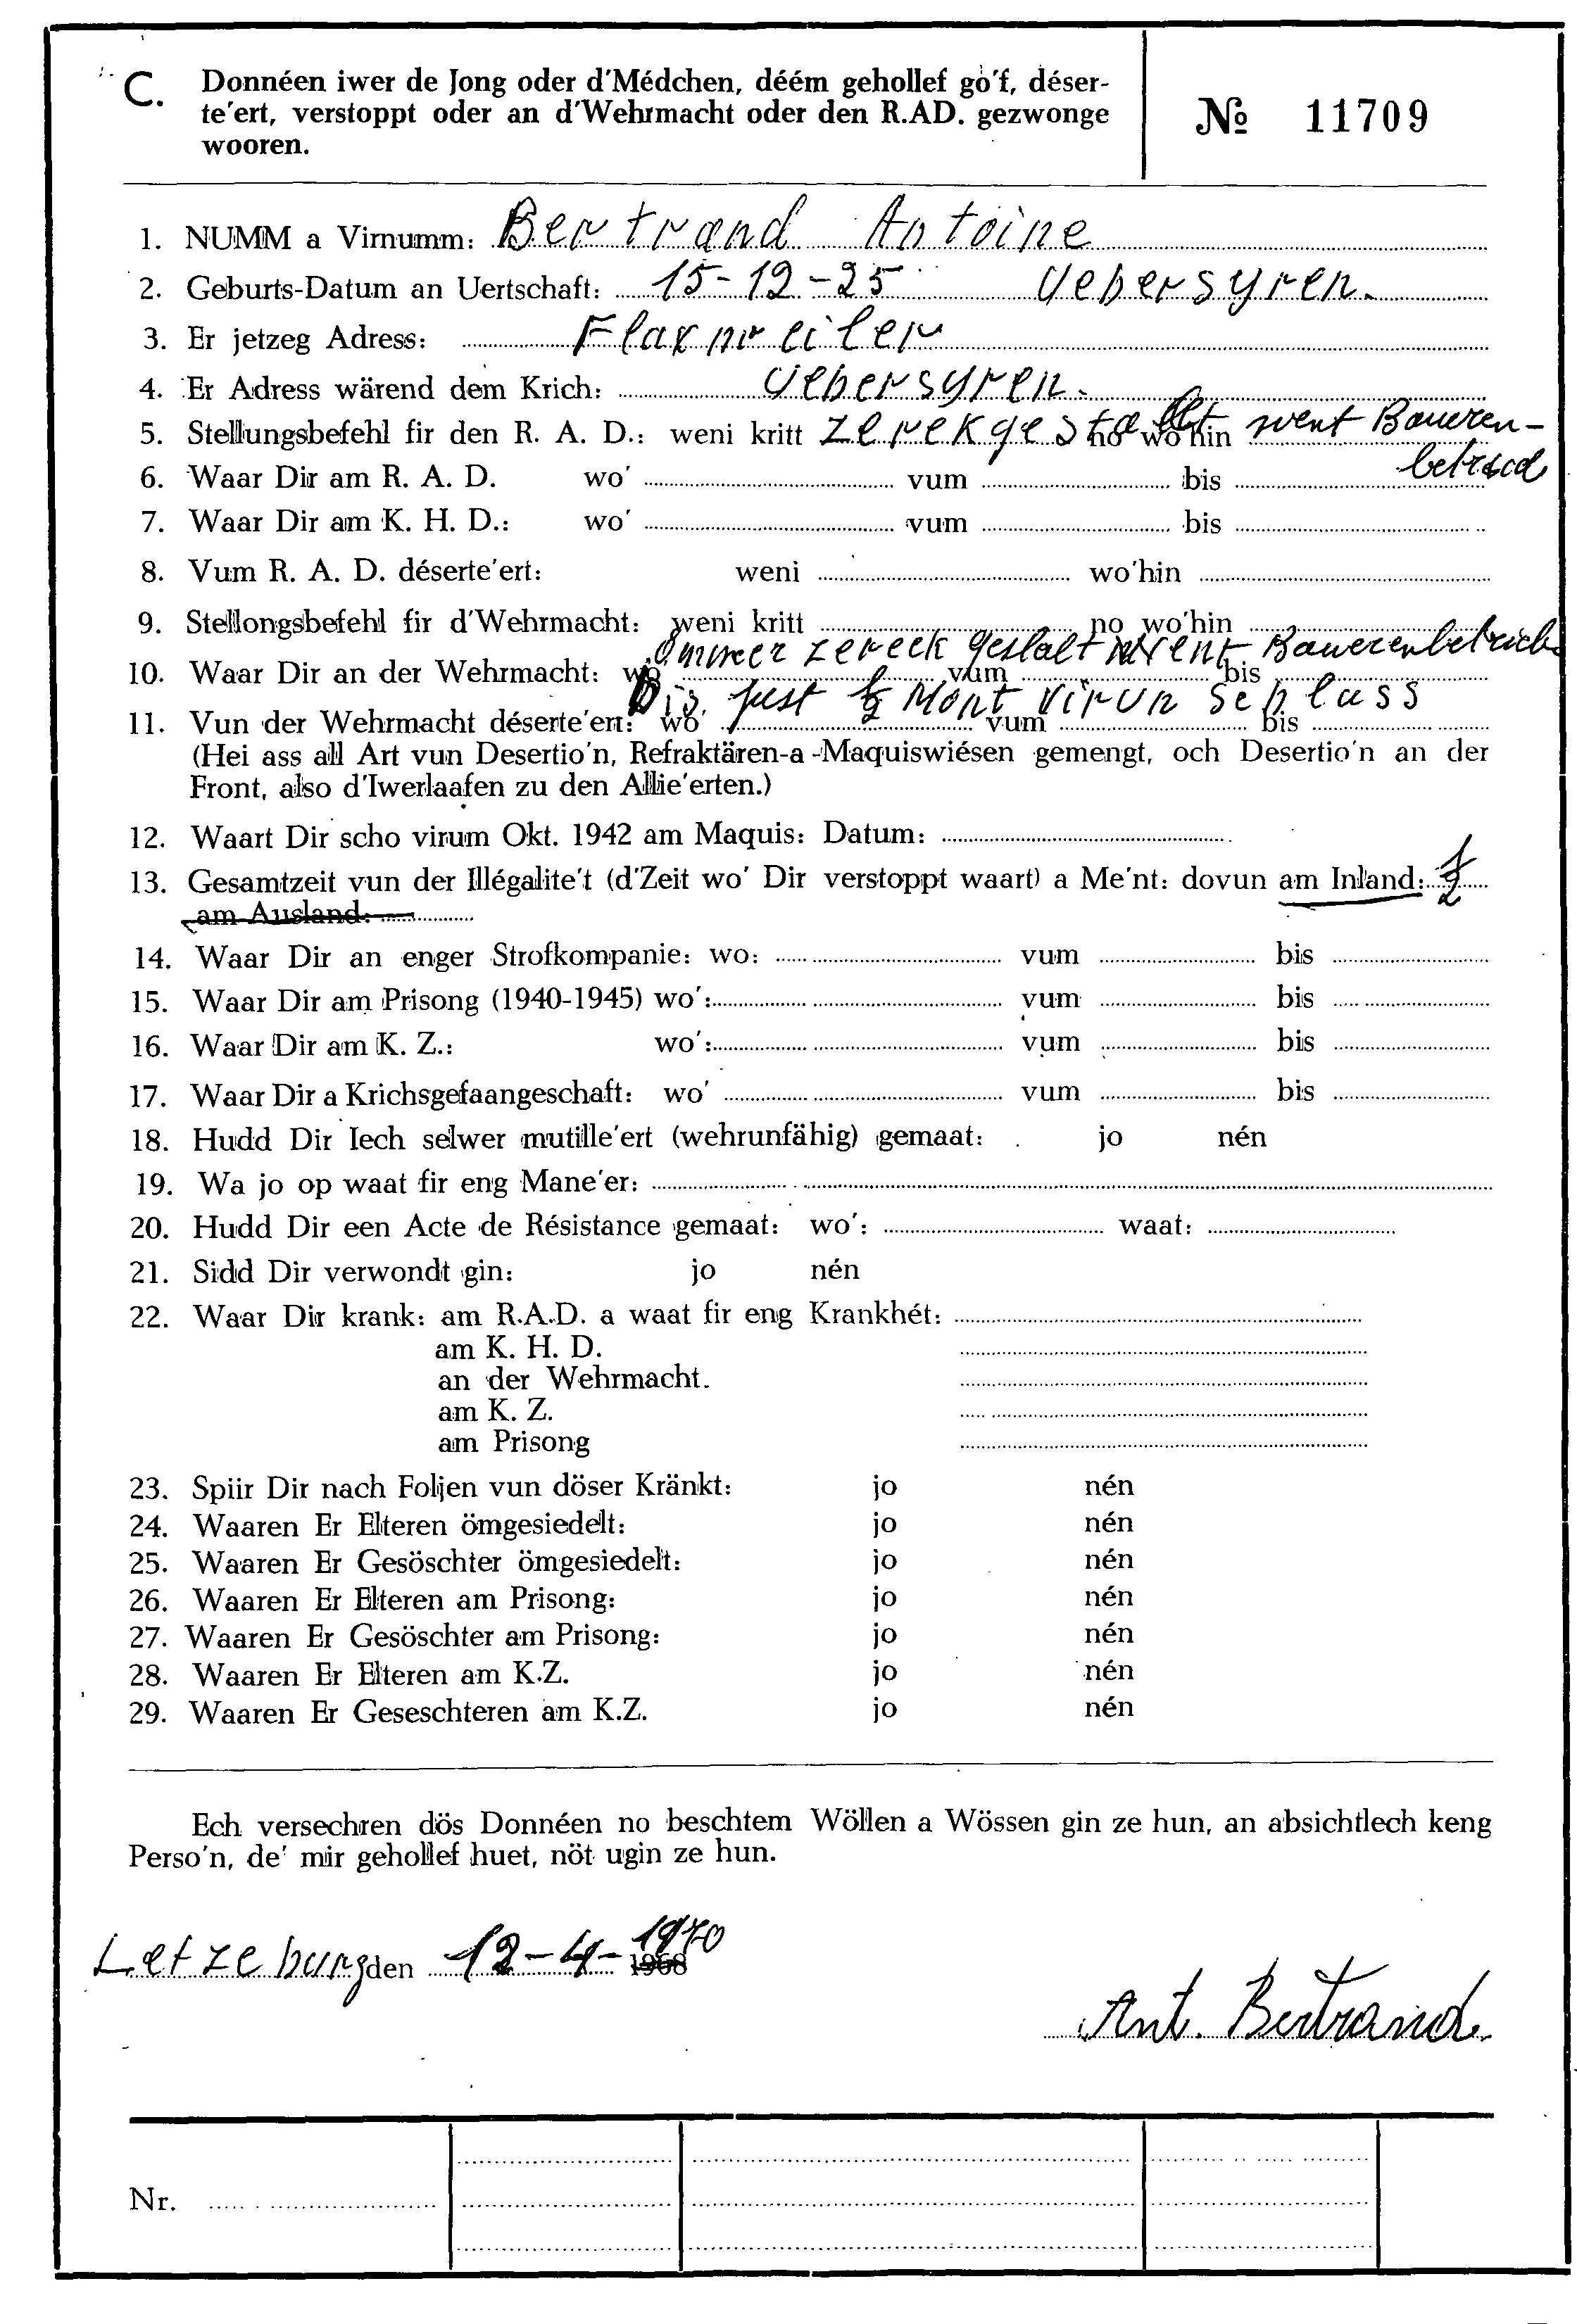 C. Donnéen iwer de Jong oder d'Médchen, déém gehollef go'f, déser-
te'ert, verstoppt oder an d'Wehrmacht oder den R.AD. gezwonge
wooren.
№ 11709
1. NUMM a Virnumm: Bertrand Antoine
2. Geburts-Datum an Uertschaft: 15-12-25 Uebersyren.
3. Er jetzeg Adress: Flaxweiler
4. Er Adress wärend dem Krich: Uebersyren.
5. Stellungsbefehl fir den R. A. D.: weni kritt zerekgestallt no wo'hin went Baueren-
betrieb
6. Waar Dir am R. A. D. wo' vum bis
7. Waar Dir am K. H. D.: wo' vum bis
8. Vum R. A. D. déserte'ert: weni wo'hin
9. Stellongsbefehl fir d'Wehrmacht: weni kritt no wo'hin
Ommer zereck gestalt went Bauerenbetrieb
10. Waar Dir an der Wehrmacht: wo vum bis
Bis just ½ Mont virun Schluss
11. Vun der Wehrmacht déserte'ert: wo' vum bis
(Hei ass all Art vun Desertio'n, Refraktären-a-Maquiswiésen gemengt, och Desertio'n an der
Front, also d'Iwerlaafen zu den Allie'erten.)
12. Waart Dir scho virum Okt. 1942 am Maquis: Datum:
13. Gesamtzeit vun der Illégalite't (d'Zeit wo' Dir verstoppt waart) a Me'nt: dovun am Inland: ½
am Ausland:
14. Waar Dir an enger Strofkompanie: wo: vum bis
15. Waar Dir am Prisong (1940-1945) wo': vum bis
16. Waar Dir am K. Z.: wo': vum bis
17. Waar Dir a Krichsgefaangeschaft: wo' vum bis
18. Hudd Dir Iech selwer mutille'ert (wehrunfähig) gemaat: jo nén
19. Wa jo op waat fir eng Mane'er:
20. Hudd Dir een Acte de Résistance gemaat: wo': waat:
21. Sidd Dir verwondt gin: jo nén
22. Waar Dir krank: am R.A.D. a waat fir eng Krankhét:
am K. H. D.
an der Wehrmacht.
am K. Z.
am Prisong
23. Spiir Dir nach Foljen vun döser Kränkt: jo nén
24. Waaren Er Elteren ömgesiedelt: jo nén
25. Waaren Er Gesöschter ömgesiedelt: jo nén
26. Waaren Er Elteren am Prisong: jo nén
27. Waaren Er Gesöschter am Prisong: jo nén
28. Waaren Er Elteren am K.Z. jo nén
29. Waaren Er Geseschteren am K.Z. jo nén
Ech versechren dös Donnéen no beschtem Wöllen a Wössen gin ze hun, an absichtlech keng
Perso'n, de' mir gehollef huet, nöt ugin ze hun.
Letzeburg den 12-4-1970 1968
Ant. Bertrand
Nr.